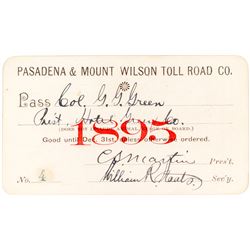 PASADENA & MOUNT WILSON TOLL ROAD CO.
Pass Col. G. G. Green
Prest. Hotel Green Co.
1895
Good until Dec. 31st, unless otherwise ordered.
C S Martin Pres't.
No. 4 William R. Staats Sec'y.